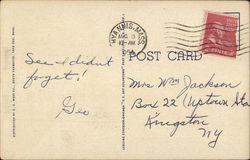 HYANNIS, MASS.
AUG
12-AM
POST CARD
See I didnt
forget!
Geo
Mrs Wm Jackson
Box 22 Uptown Sta
Kingston
NY